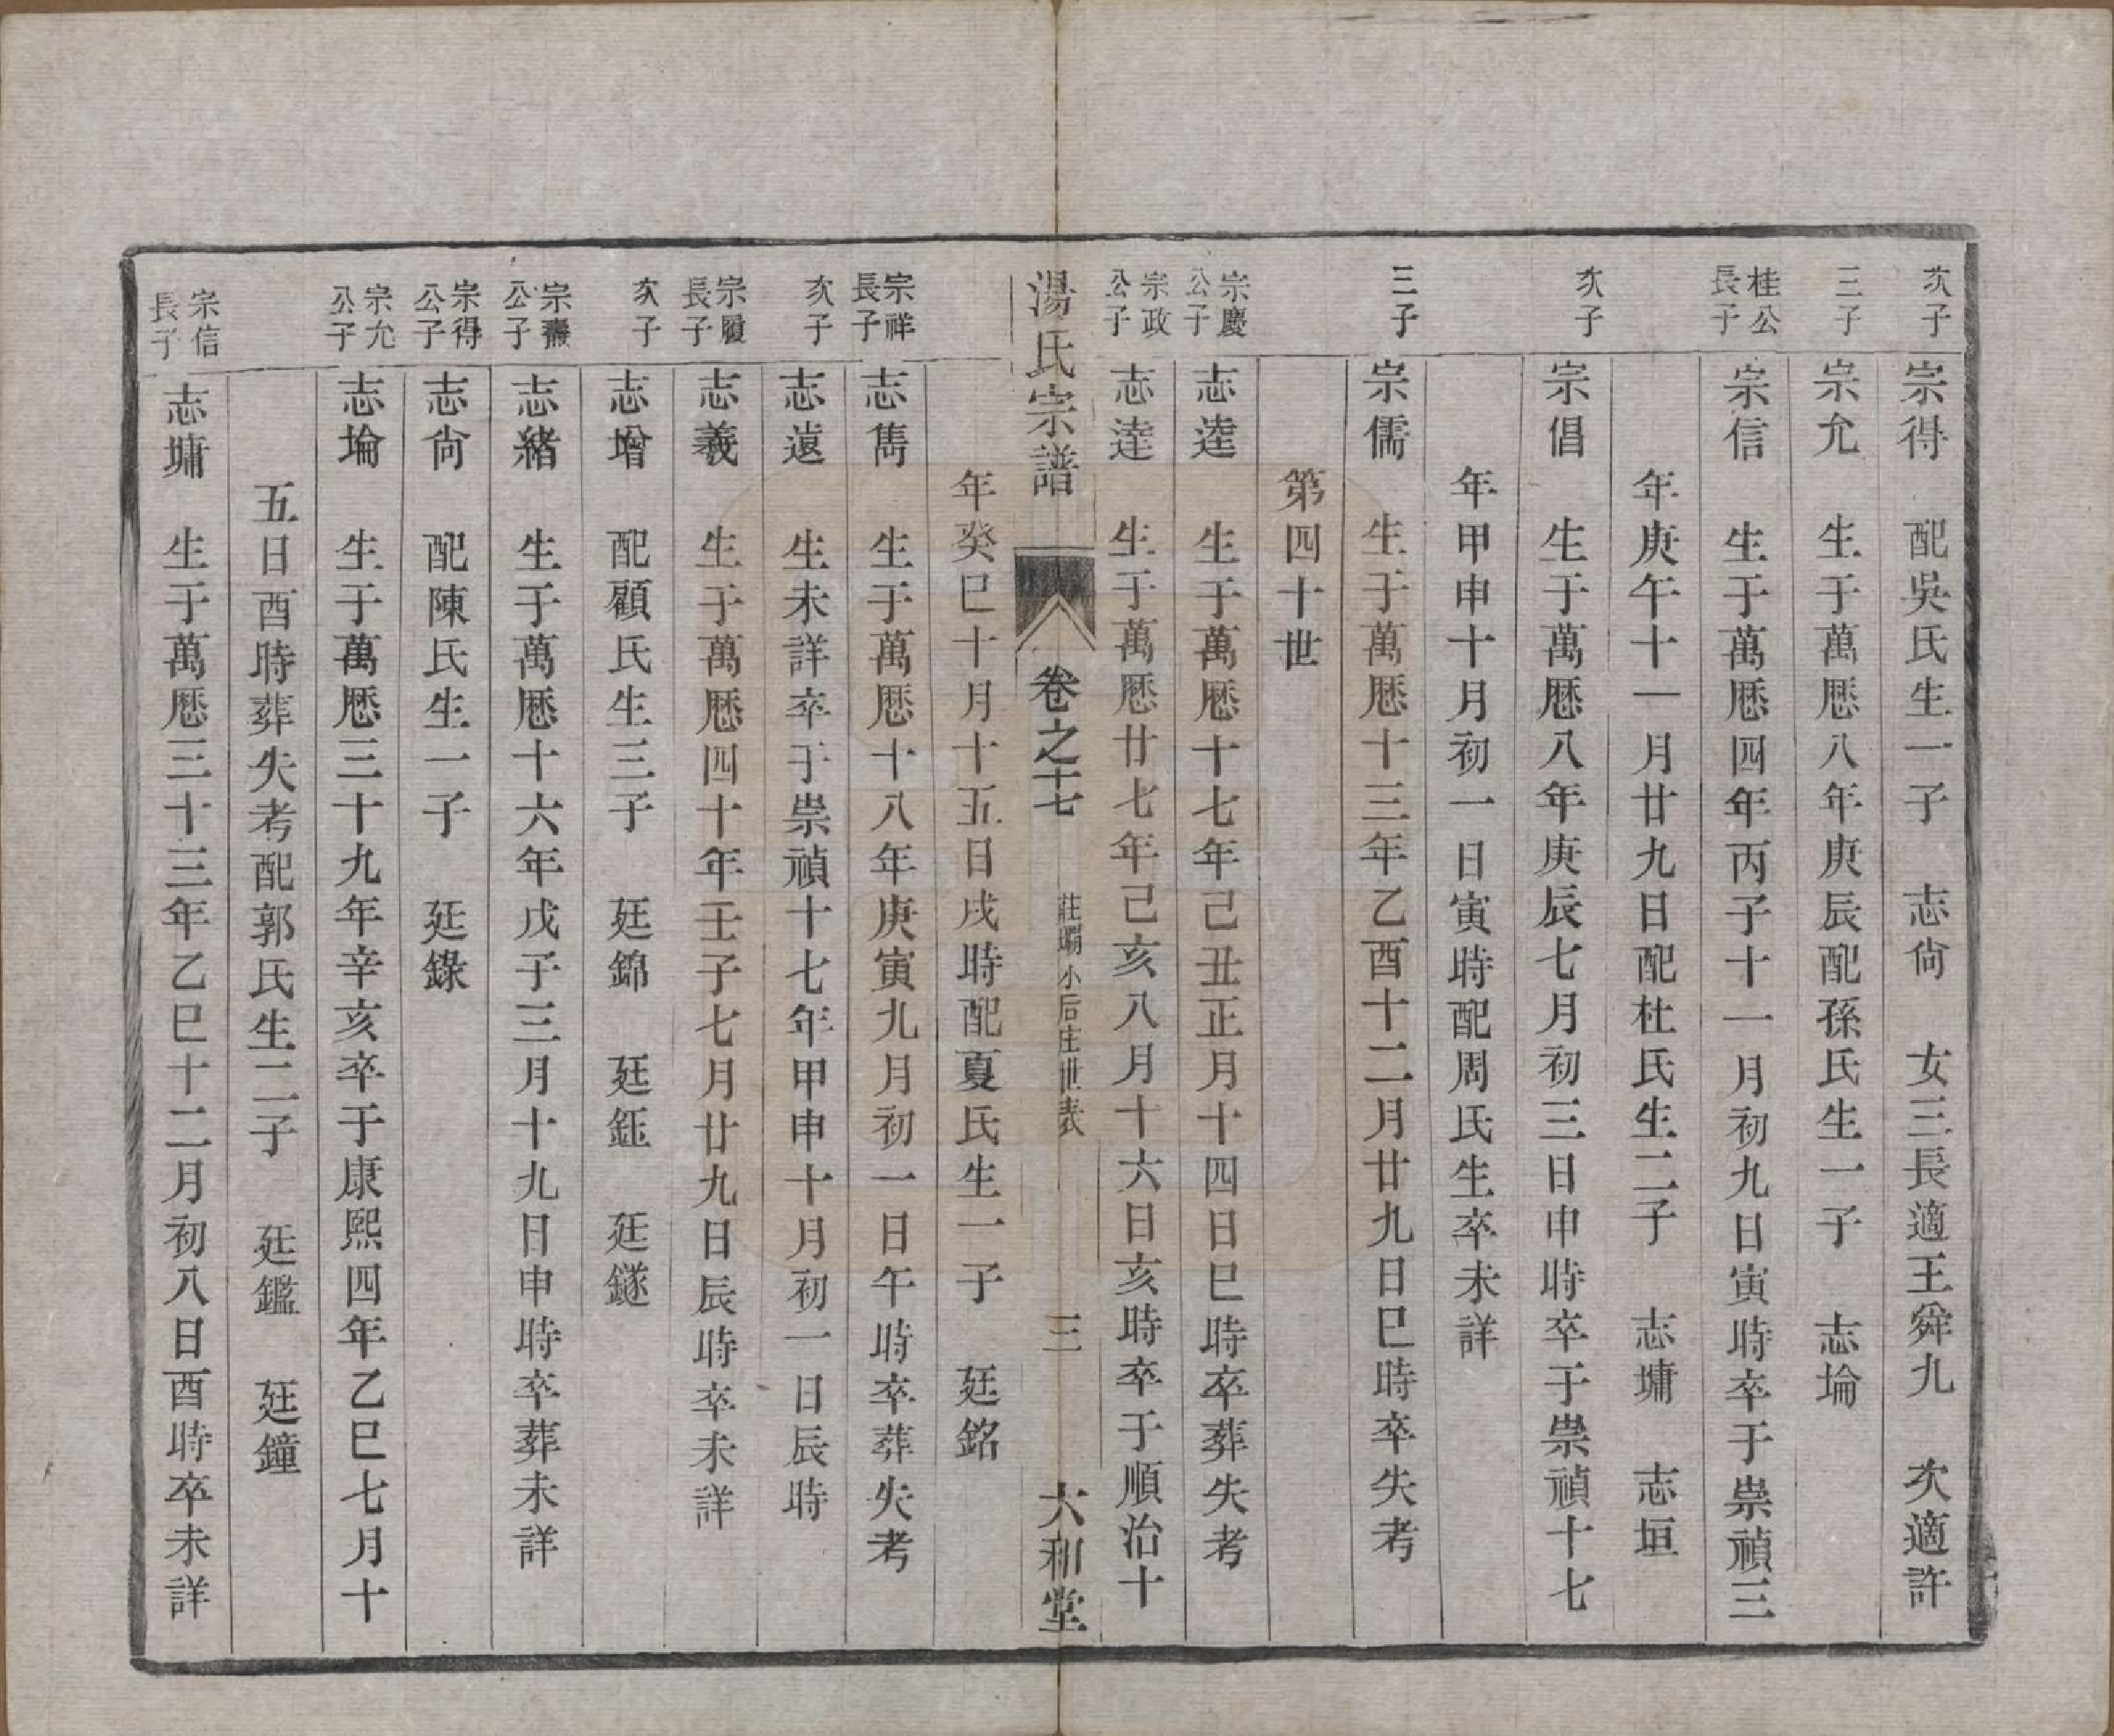 次子 宗得 配吳氏生一子 志尙 女三長適王舜九 次適許
三子 宗允 生于萬厯八年庚辰配孫氏生一子 志埨
桂公長子 宗信 生于萬厯四年丙子十一月初九日寅時卒于崇禎三
年庚午十一月廿九日配杜氏生二子 志墉 志垣
次子 宗倡 生于萬厯八年庚辰七月初三日申時卒于崇禎十七
年甲申十月初一日寅時配周氏生卒未詳
三子 宗儒 生于萬厯十三年乙酉十二月廿九日巳時卒失考
第四十世
宗慶公子 志逵 生于萬厯十七年己丑正月十四日巳時卒葬失考
宗政公子 志逹 生于萬厯廿七年己亥八月十六日亥時卒于順治十
湯氏宗譜 卷之十七 莊壩小后庄世表 三 六和堂
年癸巳十月十五日戌時配夏氏生一子 廷銘
宗祥長子 志雋 生于萬厯十八年庚寅九月初一日午時卒葬失考
次子 志遠 生未詳卒于崇禎十七年甲申十月初一日辰時
宗履長子 志羲 生于萬厯四十年壬子七月廿九日辰時卒未詳
次子 志增 配顧氏生三子 廷錦 廷鈺 廷鐩
宗燾公子 志緒 生于萬厯十六年戊子三月十九日申時卒葬未詳
宗得公子 志尙 配陳氏生一子 廷錄
宗允公子 志埨 生于萬厯三十九年辛亥卒于康熙四年乙巳七月十
五日酉時葬失考配郭氏生二子 廷鑑 廷鐘
宗信長子 志墉 生于萬厯三十三年乙巳十二月初八日酉時卒未詳